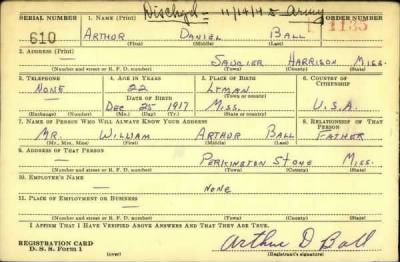 Dischgd - 11/14/45 Army
SERIAL NUMBER 1. NAME (Print) ORDER NUMBER
610 ARTHUR DANIEL BALL 1135
(First) (Middle) (Last)
2. ADDRESS (Print)
— SAUCIER HARRISON MISS.
(Number and street or R. F. D. number) (Town) (County) (State)
3. TELEPHONE 4. AGE IN YEARS 5. PLACE OF BIRTH 6. COUNTRY OF CITIZENSHIP
NONE 22 LYMAN
DATE OF BIRTH (Town or county)
DEC 25 1917 MISS. U.S.A.
(Exchange) (Number) (Mo.) (Day) (Yr.) (State or country)
7. NAME OF PERSON WHO WILL ALWAYS KNOW YOUR ADDRESS 8. RELATIONSHIP OF THAT PERSON
MR. WILLIAM ARTHUR BALL FATHER
(Mr., Mrs., Miss) (First) (Middle) (Last)
9. ADDRESS OF THAT PERSON
— PERKINSTON STONE MISS.
(Number and street or R. F. D. number) (Town) (County) (State)
10. EMPLOYER'S NAME
— NONE
11. PLACE OF EMPLOYMENT OR BUSINESS
—
(Number and street or R. F. D. number) (Town) (County) (State)
I AFFIRM THAT I HAVE VERIFIED ABOVE ANSWERS AND THAT THEY ARE TRUE.
REGISTRATION CARD
D. S. S. Form 1 (over) Arthur D Ball
(Registrant's signature)